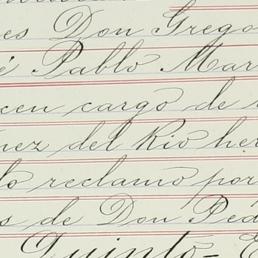 es Don Grego
é Pablo Mar
cen cargo de
nez del Rio her
lo reclamo por
s de Don Ped
Quinto-